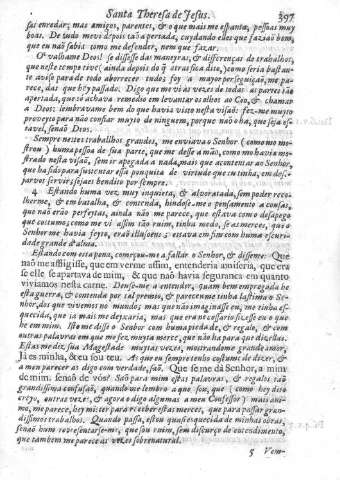 Santa Theresa de Jesus. 397
sas enredar; mas amigos, parentes, & o que mais me espanta, pessoas muy
boas. De tudo me vi depois taõ apertada, cuydando elles que faziaõ bem,
que eu naõ sabia como me defender, nem que fazar.
O valhame Deos! se dissesse das maneyras, & differenças de trabalhos,
que neste tempo tive, ainda depois do q̃ atras fica dito, como seria bastan-
te aviso para de todo aborrecer tudo, foy a mayor perseguiçaõ, me pa-
rece, das que hey passado. Digo que me vi as vezes de todas as partes taõ
apertada, que só achava remedio em levantar os olhos ao Ceo, & chamar
a Deos: lembravame bem do que havia visto nesta visaõ: fez-me muyto
proveyto para não confiar muyto de ninguem, porque naõ o ha, que seja es-
tavel, senaõ Deos.
Sempre nestes trabalhos grandes, me enviava o Senhor (como mo mo-
strou) huma pessoa de sua parte, que me desse a mão, como mo havia mo-
strado nesta visaõ, sem ir apegada a nada, mais que a contentar ao Senhor,
que ha sido para sustentar essa pouquita de virtude que eu tinha, em des-
servir: sejaes bendito por sempre.
4 Estando huma vez muy inquieta, & alvorotada, sem poder reco-
lherme, & em batalha, & contenda, hindose-me o pensamento a cousas,
que naõ eraõ perfeytas, ainda não me parece, que estava com o desapego
que costumo; como me vi assim tão ruim, tinha medo, se as merces, que o
Senhor me havia feyto, eraõ illusoẽs: estava em fim com huma escuri-
dade grande d'alma.
Estando com esta pena, começou-me a fallar o Senhor, & disseme: Que
naõ me affligisse, que em verme assim, entenderia a miseria, que era
se elle se apartava de mim, & que naõ havia segurança em quanto
viviamos nesta carne. Deuse-me a entender, quam bem empregada he
esta guerra, & contenda por tal premio, & pareceme tinha lastima o Se-
nhor, dos que vivemos no mundo: mas que naõ imaginasse eu, me tinha es-
quecida, que ja mais me deyxaria, mas que era necessario fizesse eu o que
he em mim. Isto me disse o Senhor com huma piedade, & regalo, & com
outras palavras em que me fez muyta merce, que naõ ha para que dizellas.
Estas me diz sua Magestade muytas vezes, mostrandome grande amor:
Já es minha, & eu sou teu. As que eu sempre tenho costume de dizer, &
a meu parecer as digo com verdade, saõ. Que se me dá Senhor, a mim
de mim, senaõ de vós? Saõ para mim estas palavras, & regalos taõ
grandissima confusaõ, quando me lembro a que sou, que (como hey dito
creyo, outras vezes: & agora o digo algumas a meu Confessor) mais ani-
mo, me parece, hey mister para receber estas merces, que para passar gran-
dissimos trabalhos. Quando passa, estou quasi esquecida de minhas obras,
senaõ hum representarse-me, que sou ruim, sem discurso de entendimento,
que tambem me parece as vezes sobrenatural.
5 Vem-